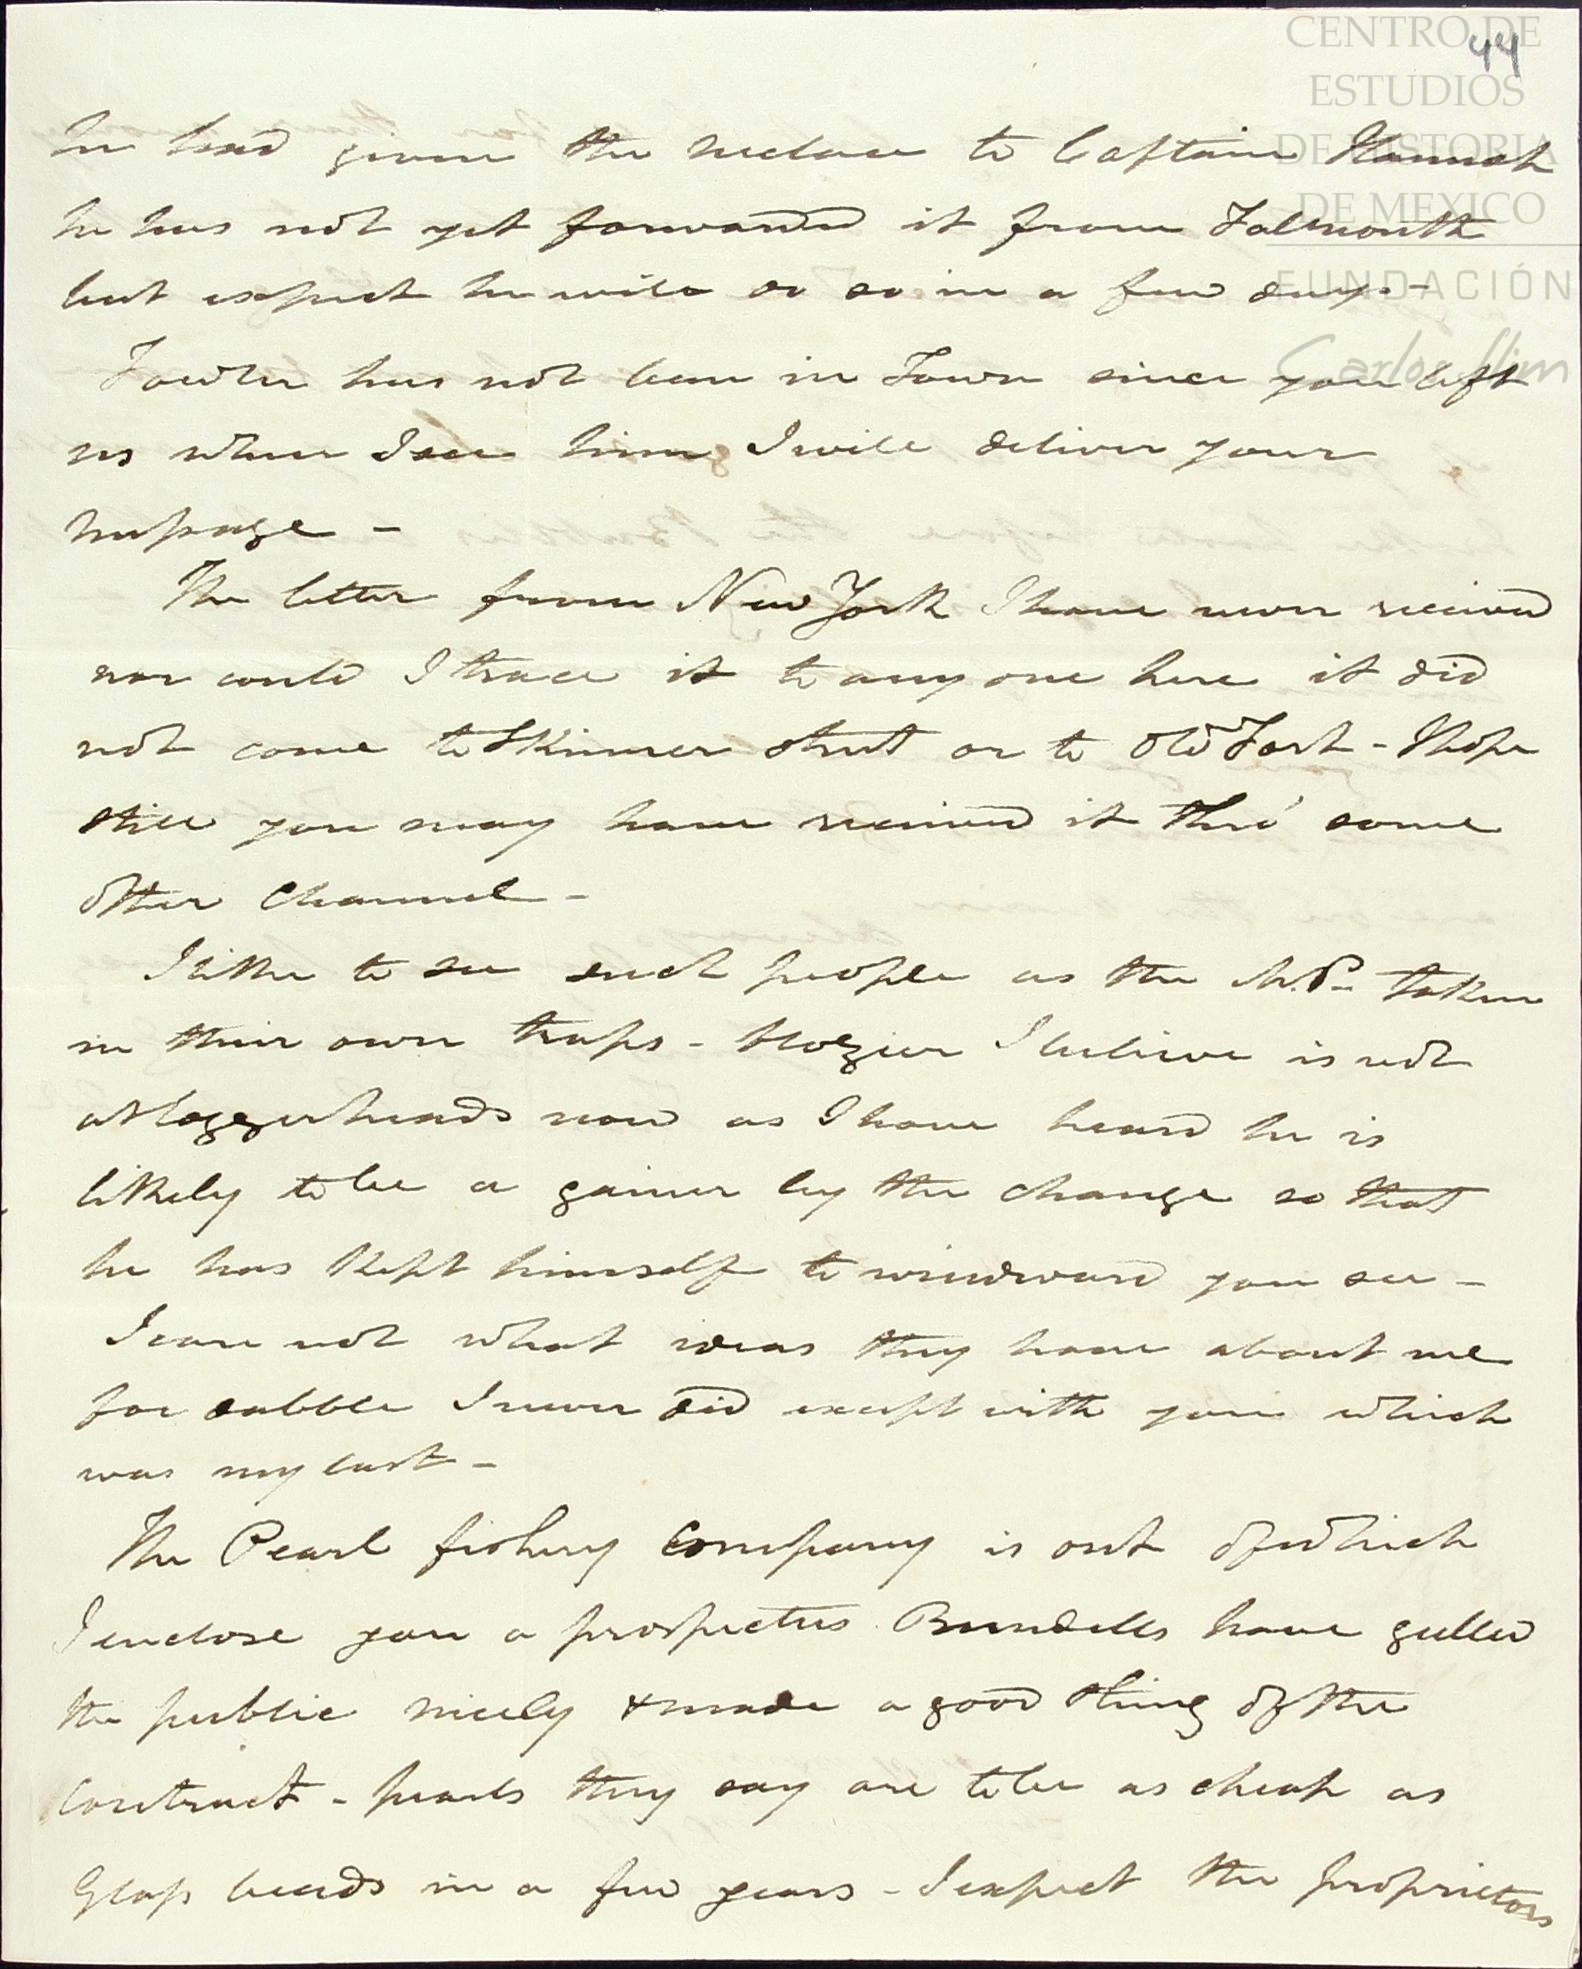 44
CENTRO DE
ESTUDIOS
DE HISTORIA
DE MEXICO
FUNDACIÓN
Carlos Slim
he had given the necklace to Captain Hannah
he has not yet forwarded it from Falmouth
but expect he will do so in a few days. -
Fowler has not been in Town since you left
us when I see him I will deliver your
message -
The letter from New York I have never received
nor could I trace it to any one here it did
not come to Skinner Street or to Old Fort - I hope
still you may have received it thro' some
other Channel -
I like to see such people as the M.P. taken
in their own traps - Hozier I believe is not
at loggerheads now as I have heard he is
likely to be a gainer by the change so that
he has kept himself to windward you see -
I care not what ideas they have about me
for dabble I never did except with you which
was my last -
The Pearl fishery Company is out of which
I enclose you a prospectus Rundells have gulled
the public nicely & made a good thing of the
Contract - pearls they say are to be as cheap as
Glass beads in a few years - I expect the proprietors